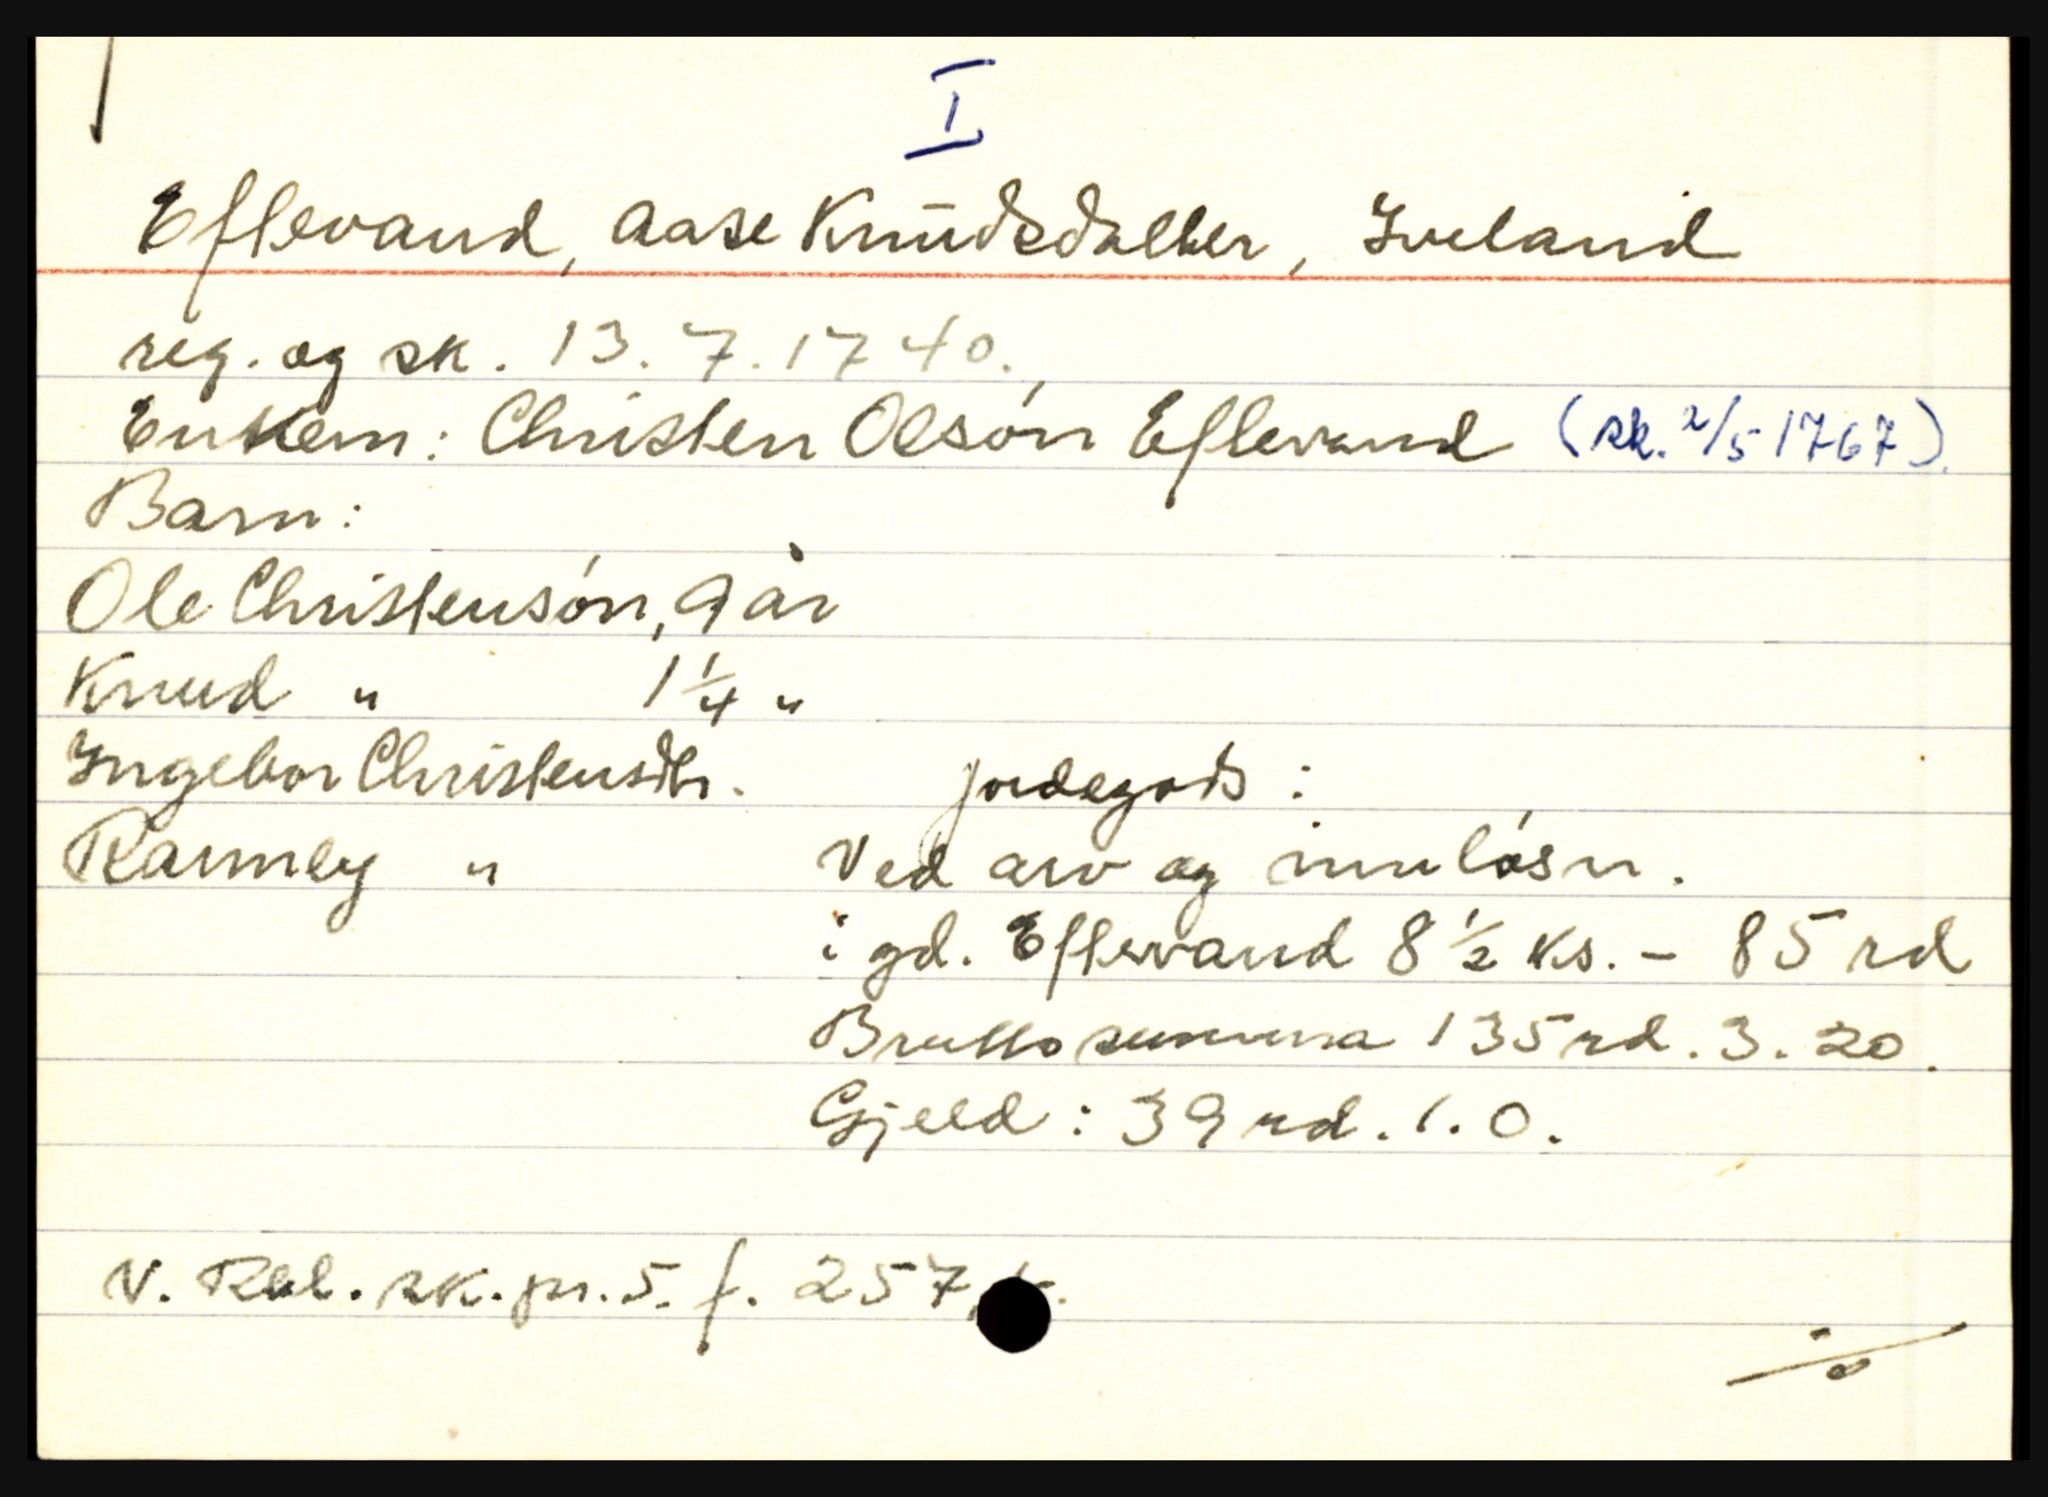 I
Eftevand, Aase Knudsdatter, Iveland
reg. og sk. 13.7.1740.
Enkem: Christen Olsøn Eftevand (sk. 2/5 1767).
Barn:
Ole Christensøn, 9 år
Knud " 1 1/4 "
Ingebor Christensdtr. jordegods:
Ranney " Ved arv og innløsn.
i gd. Eftevand 8 1/2 ks. - 85 rd
Brutto summa 135 rd. 3. 20.
Gjeld: 39 rd. 1. 0.
V. Rbl. sk. pr. 5. f. 257,